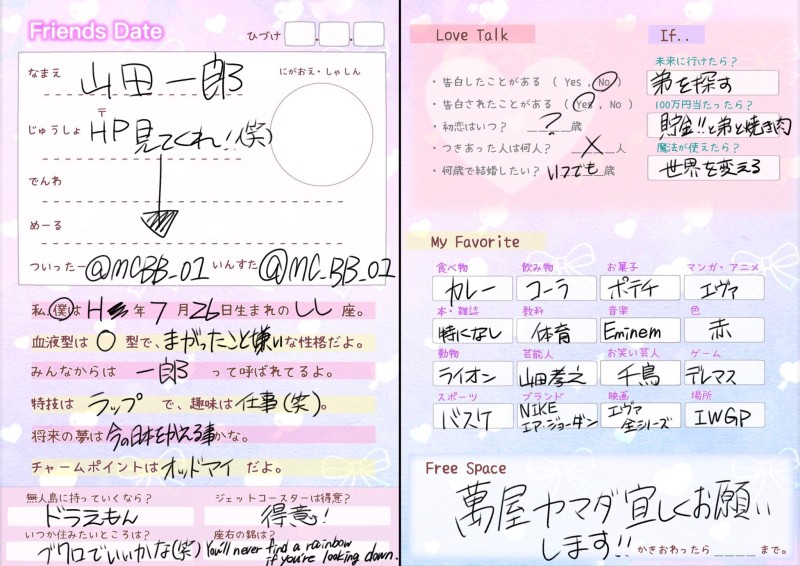 Friends Date
ひづけ . .
なまえ 山田一郎
にがおえ・しゃしん
〒
じゅうしょ HP見てくれ!(笑)
でんわ
めーる
ついったー @MCBB_01 いんすた @MC_BB_01
私、僕は H 年 7 月 26 日生まれの しし 座。
血液型は O 型で、まがったこと嫌いな性格だよ。
みんなからは 一郎 って呼ばれてるよ。
特技は ラップ で、趣味は 仕事(笑)。
将来の夢は 今の日本をかえる事かな。
チャームポイントは オッドアイ だよ。
無人島に持っていくなら? ジェットコースターは得意?
ドラえもん 得意!
いつか住みたいところは? 座右の銘は?
ブクロでいいかな(笑) You'll never find a rainbow
if you're looking down.
Love Talk
・告白したことがある ( Yes , No )
・告白されたことがある ( Yes , No )
・初恋はいつ? ? 歳
・つきあった人は何人? X 人
・何歳で結婚したい? いつでも 歳
If..
未来に行けたら?
弟を探す
100万円当たったら?
貯金!!と弟と焼き肉
魔法が使えたら?
世界を変える
My Favorite
食べ物 飲み物 お菓子 マンガ・アニメ
カレー コーラ ポテチ エヴァ
本・雑誌 教科 音楽 色
特になし 体育 Eminem 赤
動物 芸能人 お笑い芸人 ゲーム
ライオン 山田孝之 千鳥 デレマス
スポーツ ブランド 映画 場所
バスケ NIKE エヴァ IWGP
エア・ジョーダン 全シリーズ
Free Space
萬屋ヤマダ宜しくお願い
します!!
かきおわったら ____ まで。